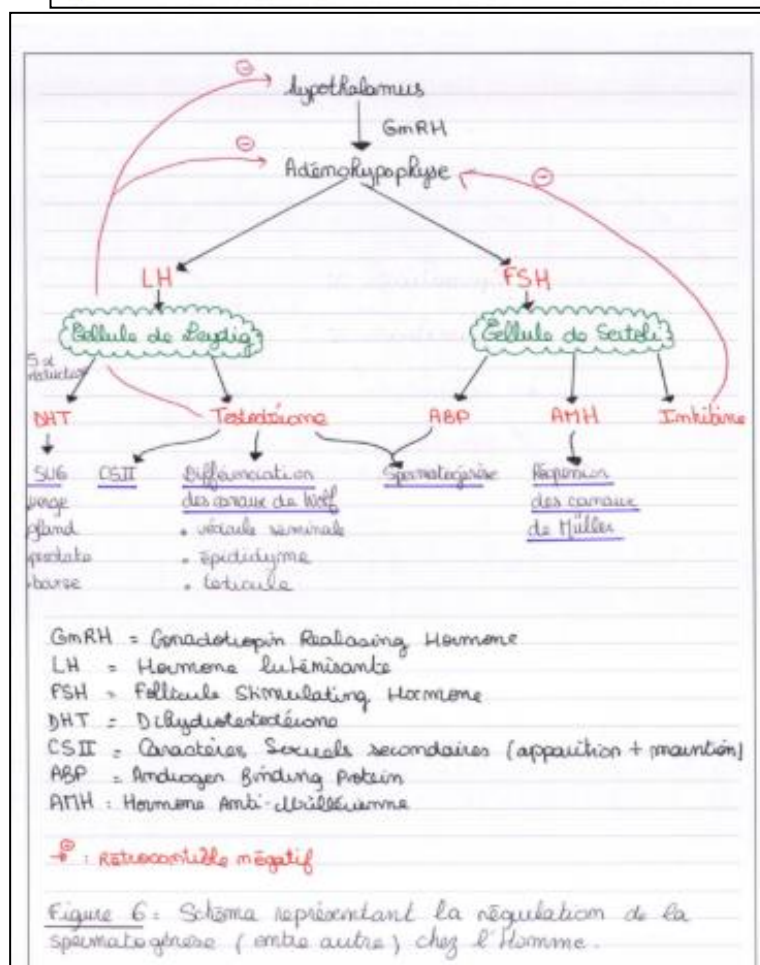 hypothalamus
GmRH
Adémohypophyse
LH
FSH
Cellule de Leydig
Cellule de Sertoli
5 α
réductase
DHT
Testostérone
ABP
AMH
Inhibine
SUG
CSII
Différenciation
Spermatogenèse
Régression
verge
des canaux de Wolf
des canaux
gland
• vésicule seminale
de Müller
prostate
• épididyme
bourse
• testicule
GmRH = Gonadotropin Realasing Hormone
LH = Hormone lutémisante
FSH = Follicule Stimulating Hormone
DHT = Dihydrotestostérone
CSII = Caractères Sexuels secondaires (apparition + maintien)
ABP = Androgen Binding Protein
AMH : Hormone Anti-Mullérienne
⊖ : Rétrocontrôle négatif
Figure 6 : Schéma représentant la régulation de la
spermatogénèse (entre autre) chez l'Homme.